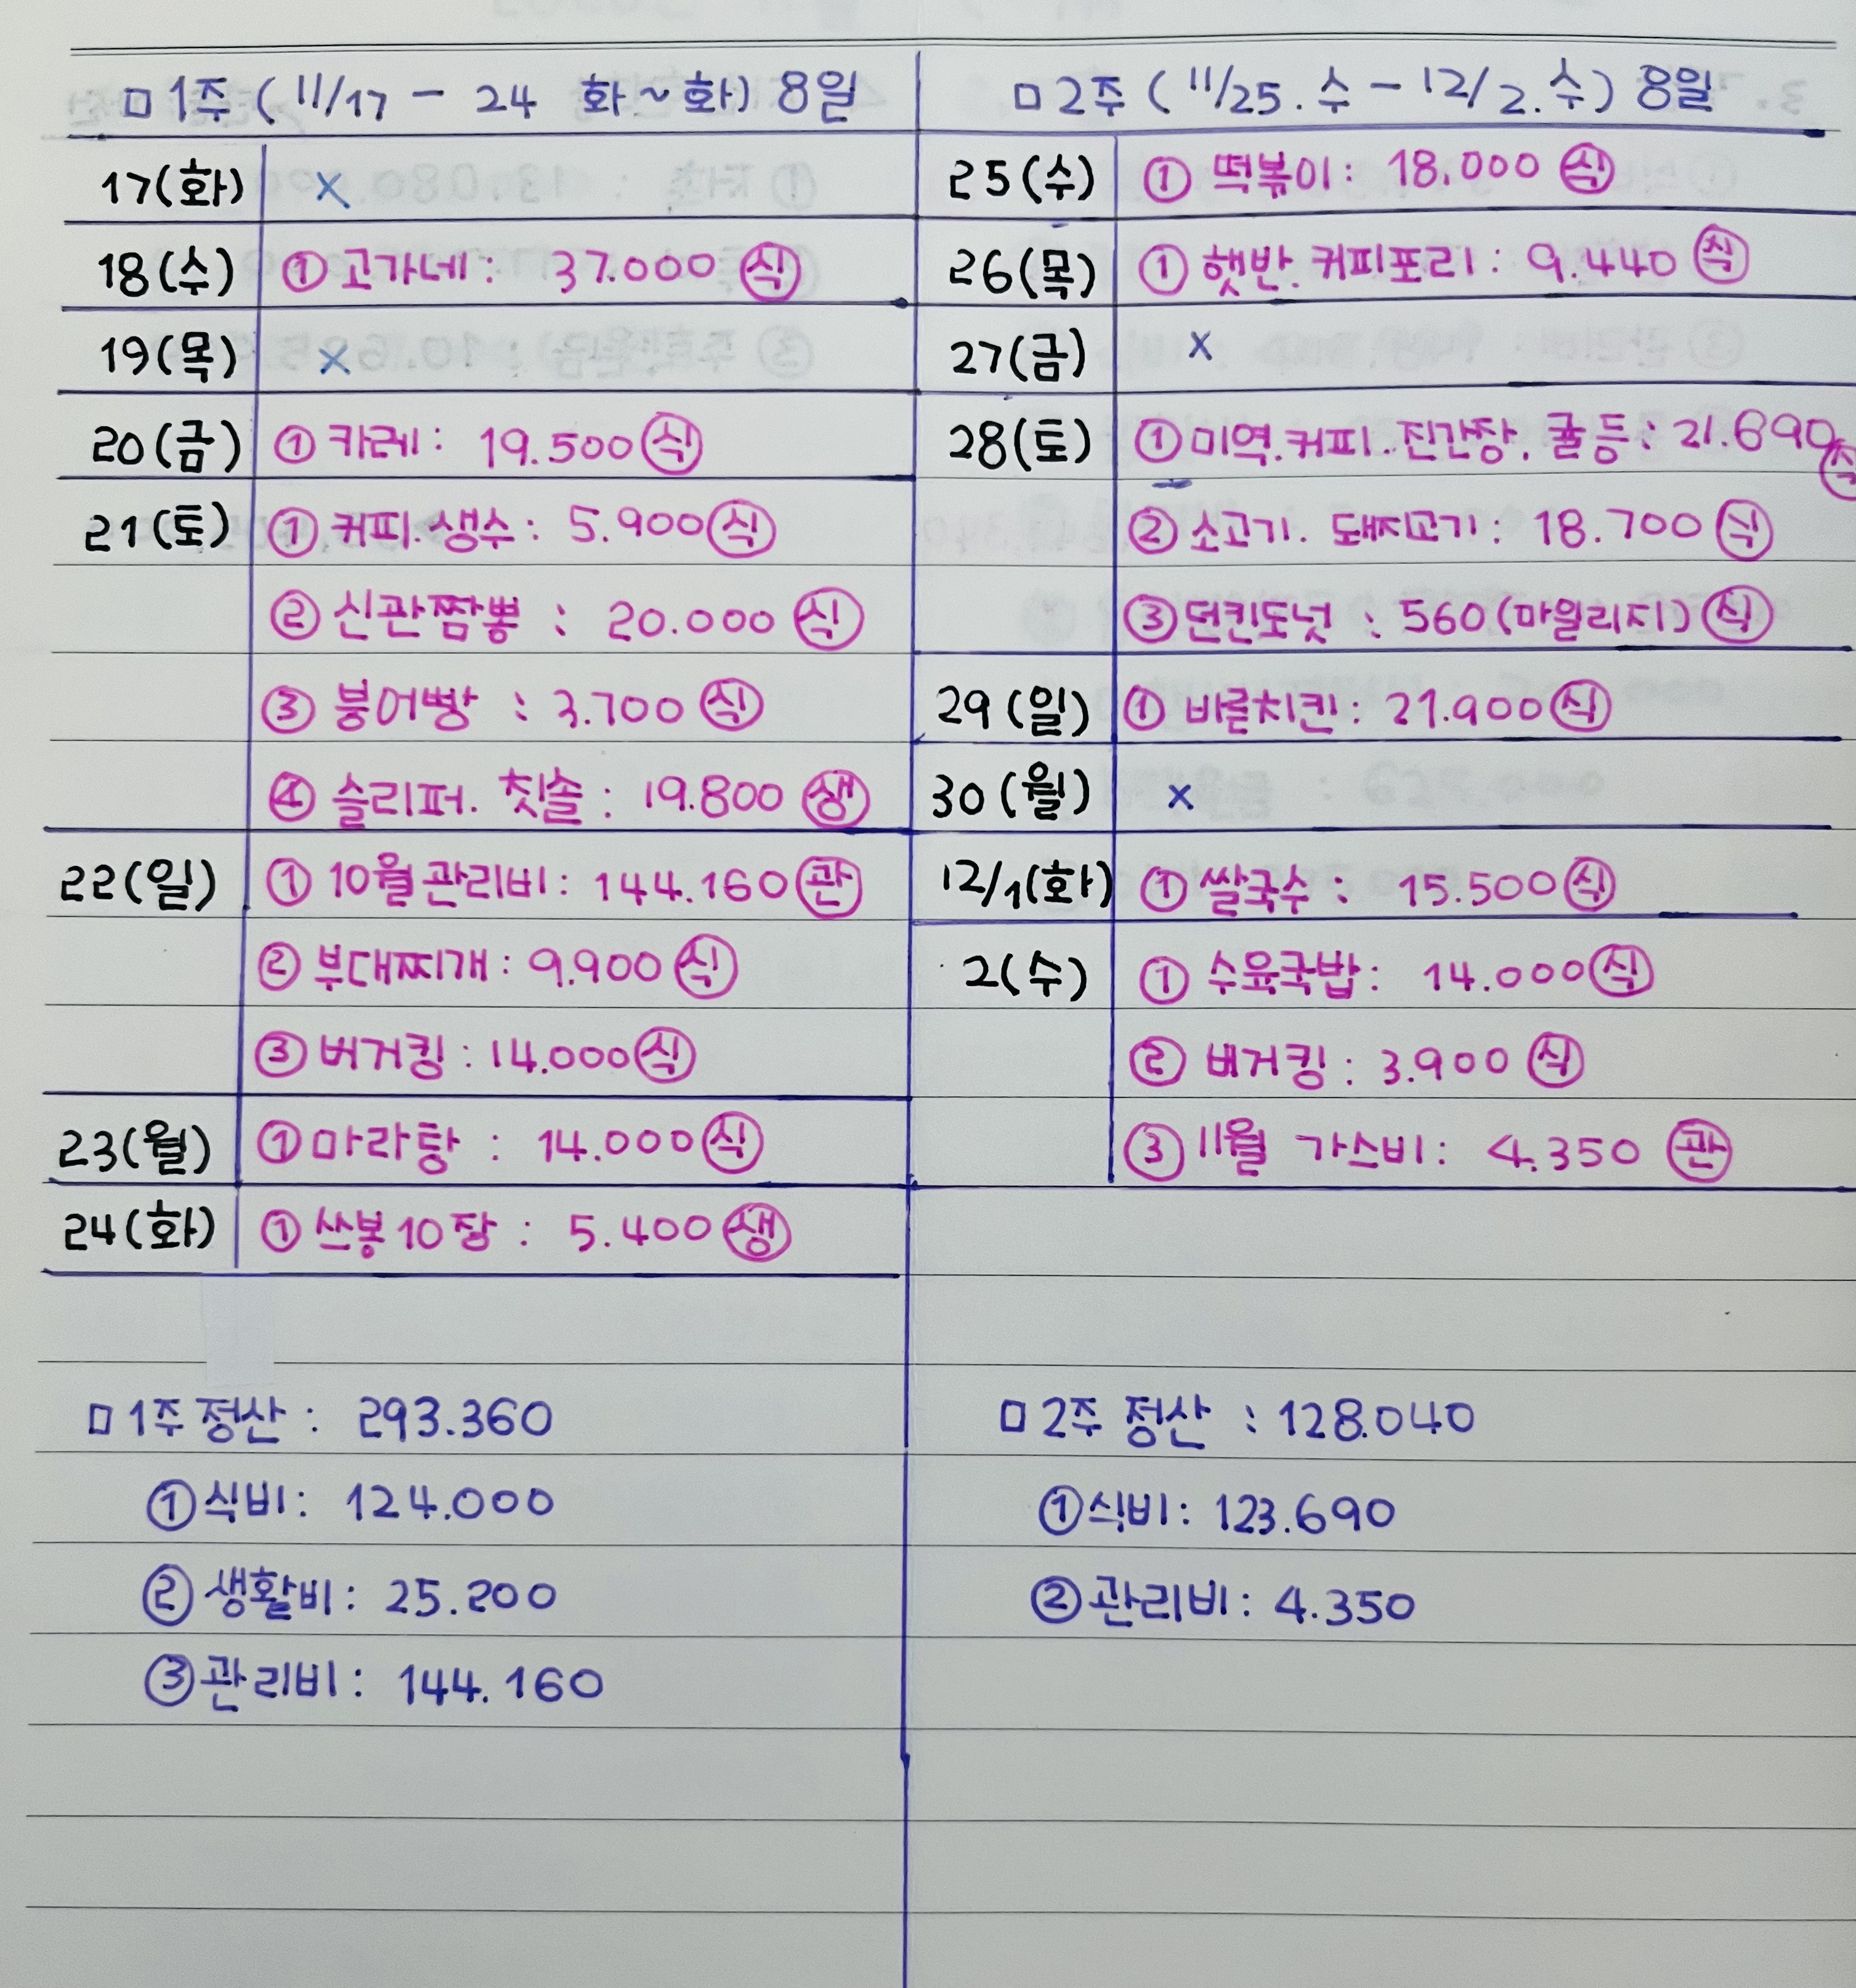 □ 1주 (11/17 - 24 화~화) 8일
17(화) x
18(수) ① 고가네 : 37.000 식
19(목) x
20(금) ① 카레 : 19.500 식
21(토) ① 커피.생수 : 5.900 식
② 신관짬뽕 : 20.000 식
③ 붕어빵 : 3.700 식
④ 슬리퍼. 칫솔 : 19.800 생
22(일) ① 10월 관리비 : 144.160 관
② 부대찌개 : 9.900 식
③ 버거킹 : 14.000 식
23(월) ① 마라탕 : 14.000 식
24(화) ① 쓰봉 10장 : 5.400 생
□ 1주 정산 : 293.360
① 식비 : 124.000
② 생활비 : 25.200
③ 관리비 : 144.160
□ 2주 (11/25.수 - 12/2.수) 8일
25(수) ① 떡볶이 : 18.000 식
26(목) ① 햇반.커피포리 : 9.440 식
27(금) x
28(토) ① 미역.커피.진간장.굴 등 : 21.690 식
② 소고기. 돼지고기 : 18.700 식
③ 던킨도넛 : 560(마일리지) 식
29(일) ① 바른치킨 : 21.900 식
30(월) x
12/1(화) ① 쌀국수 : 15.500 식
2(수) ① 수육국밥 : 14.000 식
② 버거킹 : 3.900 식
③ 11월 가스비 : 4.350 관
□ 2주 정산 : 128.040
① 식비 : 123.690
② 관리비 : 4.350